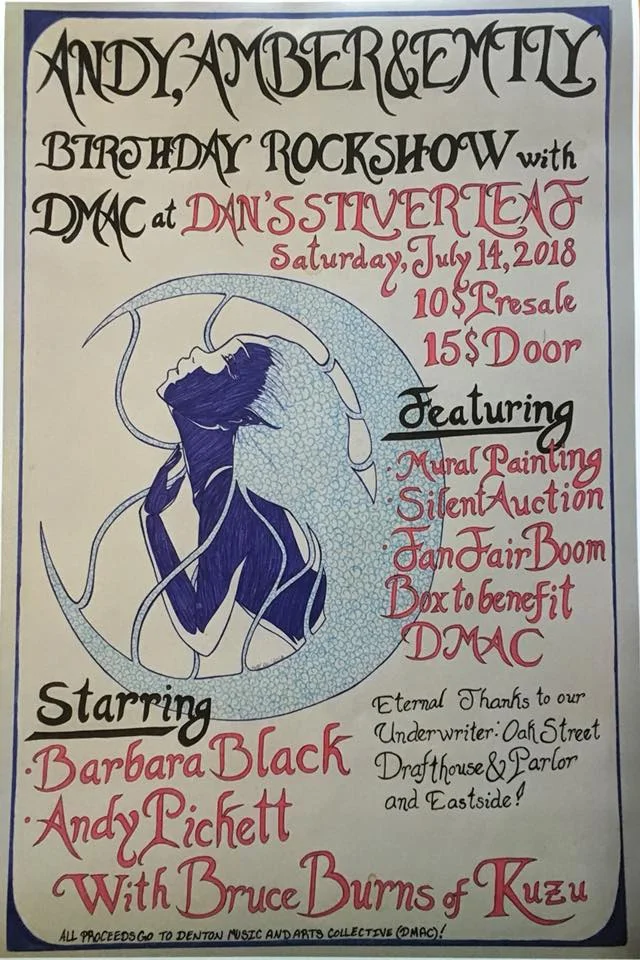 ANDY, AMBER & EMILY
BIRTHDAY ROCKSHOW with
DMAC at DAN'S SILVERLEAF
Saturday, July 14, 2018
10$ Presale
15$ Door
Featuring
· Mural Painting
· Silent Auction
· Fan Fair Boom
Box to benefit
DMAC
Starring
· Barbara Black
· Andy Pickett
With Bruce Burns of Kuzu
Eternal Thanks to our
Underwriter: Oak Street
Drafthouse & Parlor
and Eastside!
ALL PROCEEDS GO TO DENTON MUSIC AND ARTS COLLECTIVE (DMAC)!